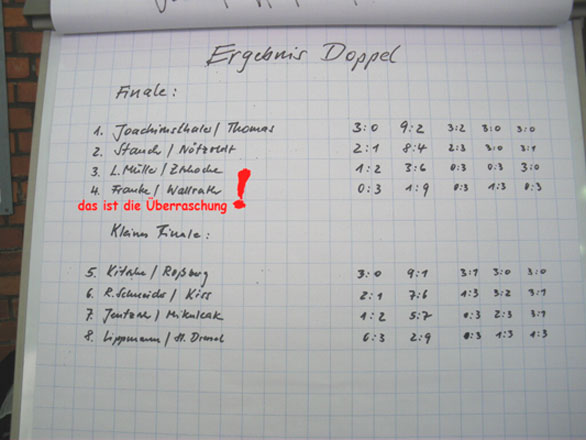 Ergebnis Doppel
Finale:
1. Joachimsthaler / Thomas 3:0 9:2 3:2 3:0 3:0
2. Stauch / Nötzoldt 2:1 8:4 2:3 3:0 3:1
3. L. Müller / 1:2 3:6 0:3 0:3 3:0
4. Franke / Wallrath 0:3 1:9 0:3 1:3 0:3
das ist die Überraschung !
Kleines Finale:
5. / Roßburg 3:0 9:1 3:1 3:0 3:0
6. R. Schneider / Kiss 2:1 7:6 1:3 3:2 3:1
7. / Mikulcak 1:2 5:7 0:3 2:3 3:1
8. Lippmann / H. 0:3 2:9 0:3 1:3 1:3